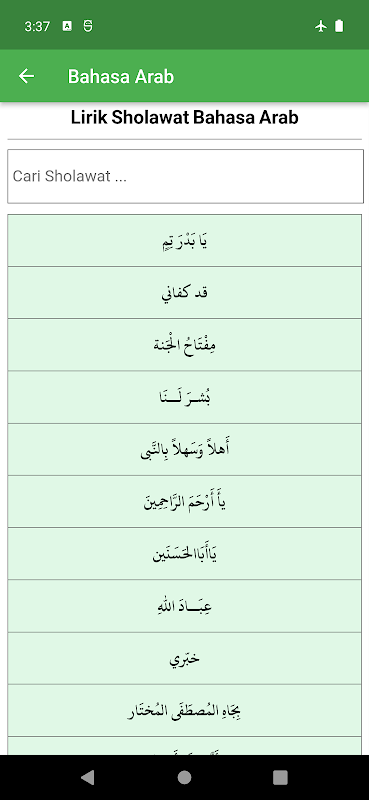 3:37
Bahasa Arab
Lirik Sholawat Bahasa Arab
Cari Sholawat ...
يَا بَدْرَ تِمٍ
قد كفاني
مِفْتَاحُ الْجَنة
بُشـرَ لَــنَا
أَهلاً وَسَهلاً بِالنَّبى
يأَ أَرْحَمَ الرَّاحِمِينَ
يَاأَبَاالحَسَنَين
عِبَــادَ اللهِ
خبَري
بِجَاهِ المُصطَفَى المُختَار